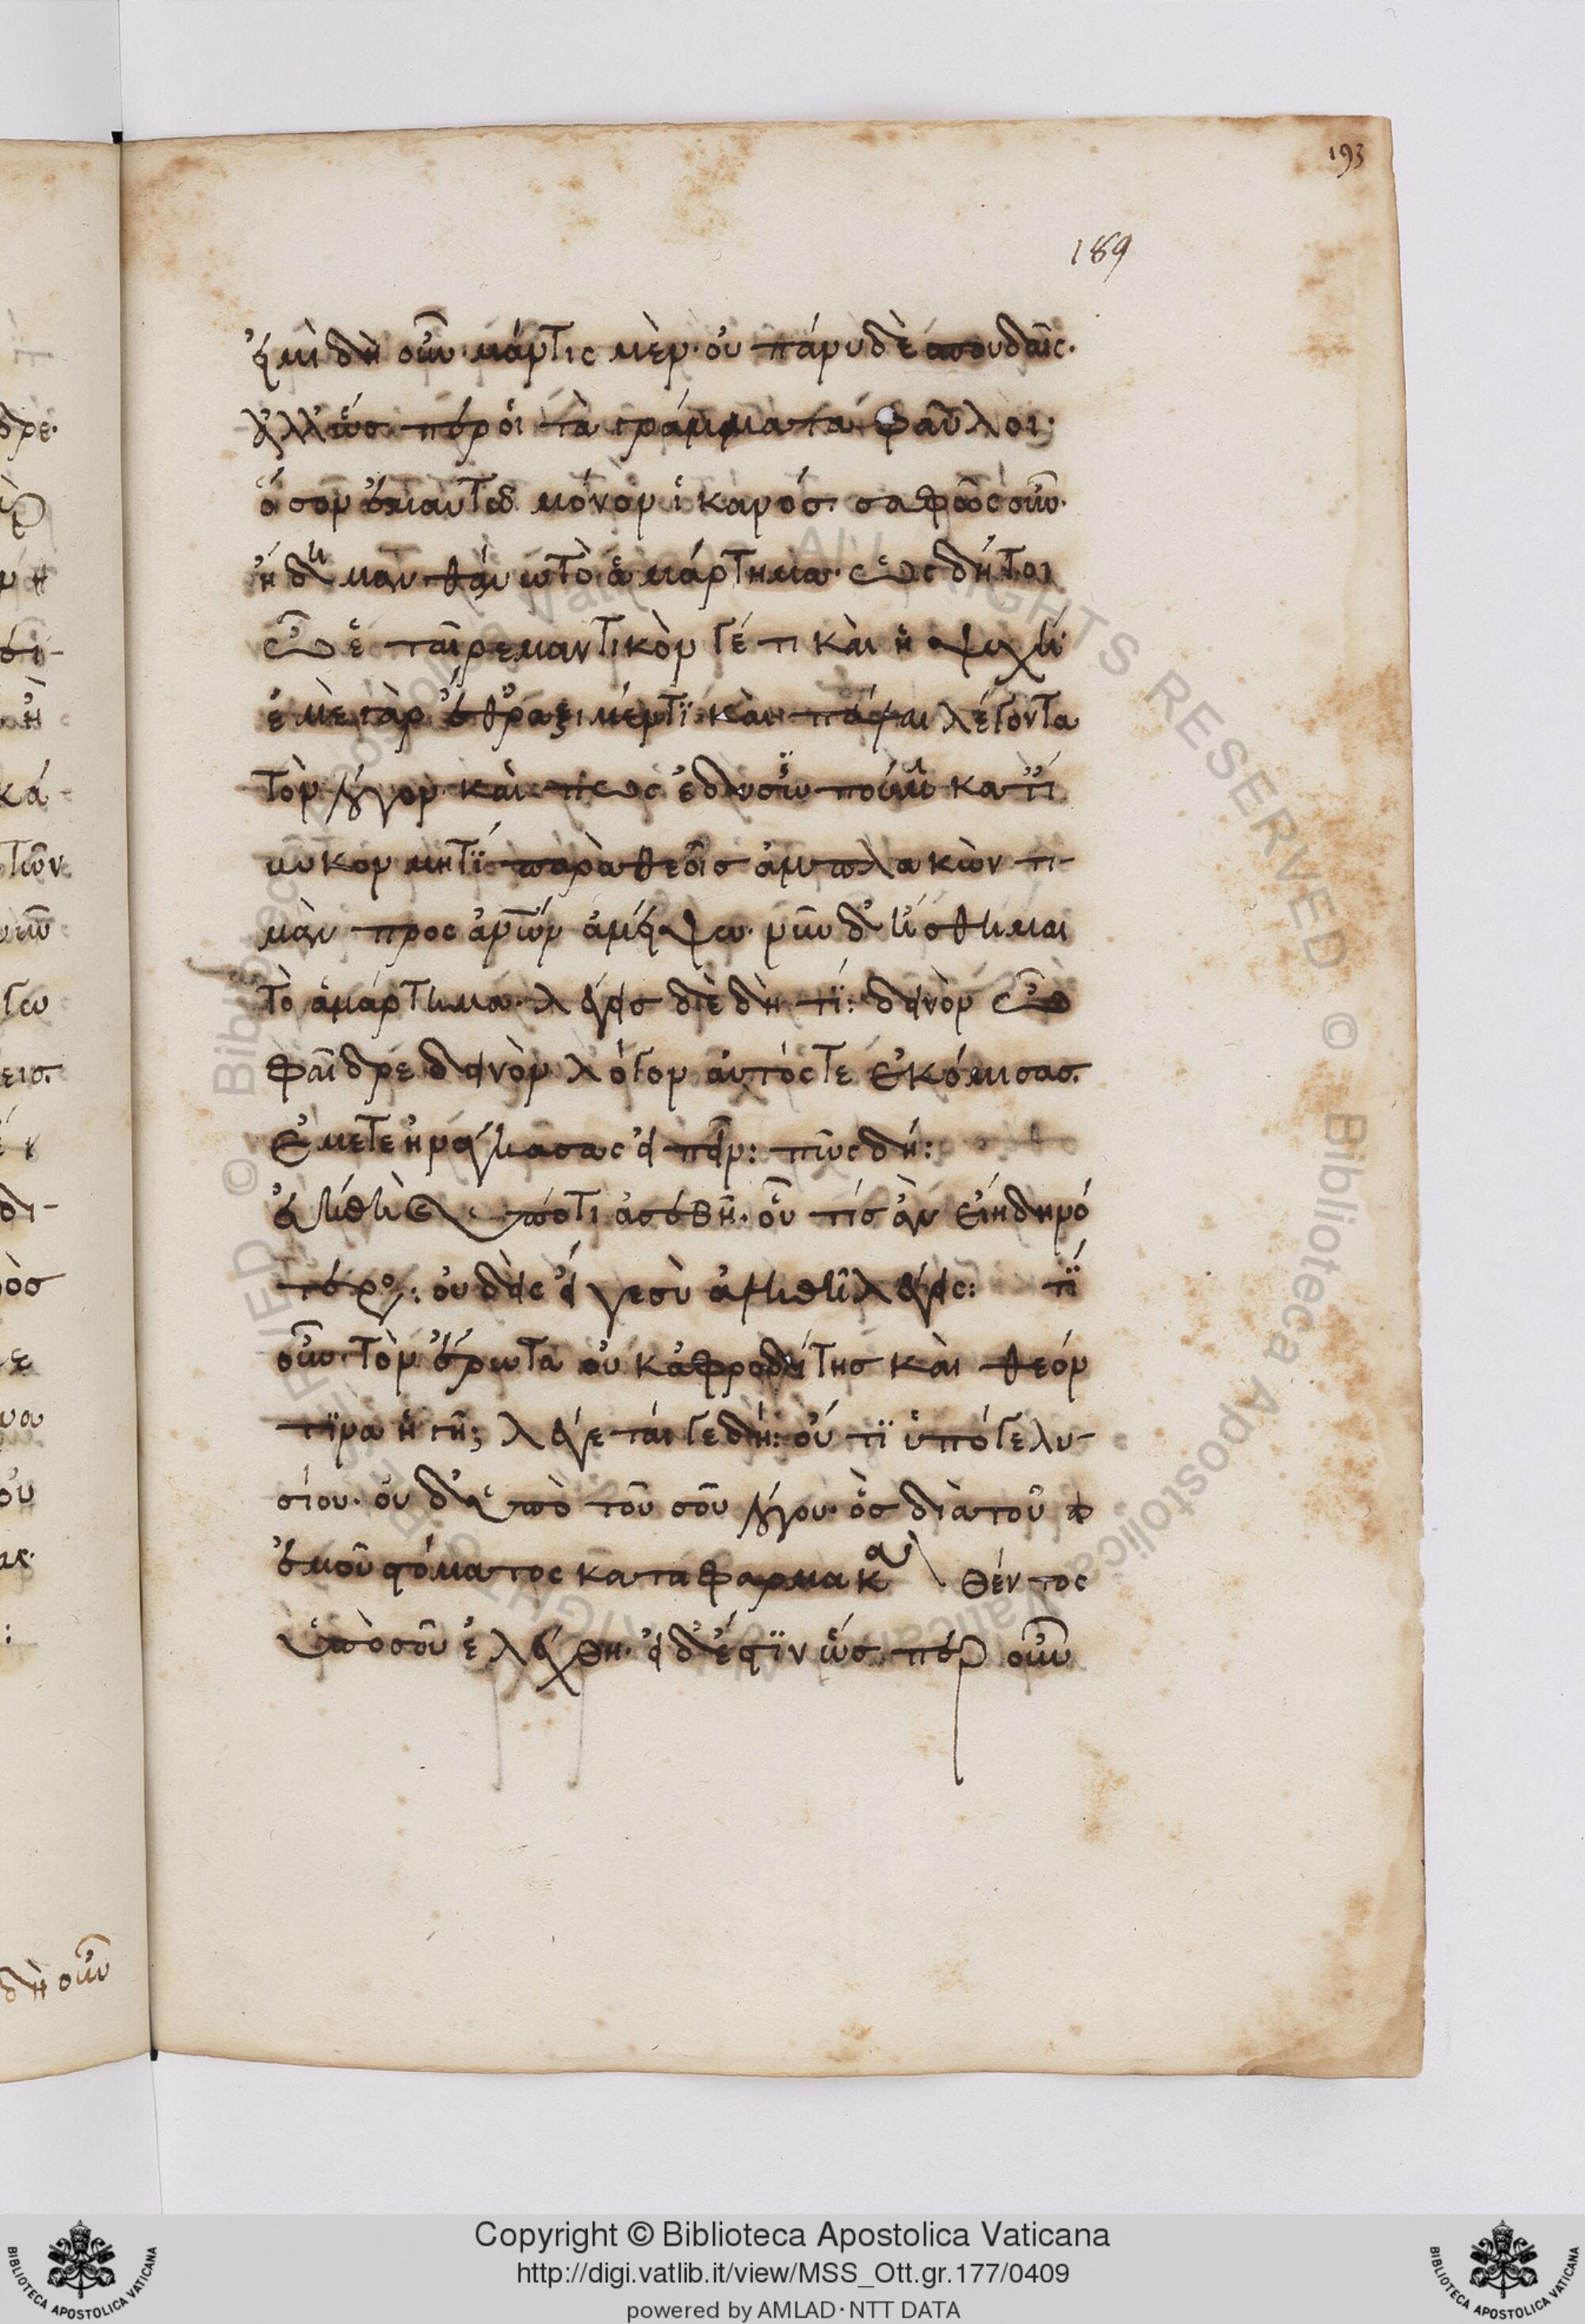 193
189
εἰμὶ δὴ οὖν μάντις μὲν· οὐ πάνυ δὲ σπουδαῖος·
ἀλλ' ὥσπερ οἱ τὰ γράμματα φαῦλοι·
ὅσον ἐμαυτῶ μόνον ἱκανός. σαφῶς οὖν·
ἤδη μανθάνω τὸ ἁμάρτημα· ὡς δή τοι
ὦ ἑταῖρε μαντικὸν γέ τι καὶ ἡ ψυχή
ἐμὲ γὰρ ἔθραξε μέν τι καὶ πάλαι λέγοντα
τὸν λόγον καὶ πως ἐδυσωπούμην κατ' ἴ
βυκον μή τι παρὰ θεοῖς ἀμπλακὼν τι-
μὰν προς ἀνθρώπων ἀμείψω· νῦν δ' ἤσθημαι
τὸ ἁμάρτημα· λέγεις δὲ δὴ τί: δεινὸν ὦ
φαῖδρε δεινὸν λόγον αὐτός τε ἐκόμισας.
ἐμέ τε ἠνάγκασας εἰπεῖν: πῶς δή:
εὐήθη καὶ ὑπό τι ἀσεβῆ· οὗ τίς ἂν εἴη δεινό
τερος: οὐδεὶς εἴ γε σὺ ἀληθῆ λέγεις: τί
οὖν τὸν ἔρωτα οὐκ ἀφροδίτης καὶ θεόν
τινα ἡγῆ; λέγεται γε δή: οὔ τι ὑπό γε λυ-
σίου· οὐδὲ ὑπὸ τοῦ σοῦ λόγου· ὃς διὰ τοῦ
ἐμοῦ στόματος καταφαρμακευθέντος
ὑπὸ σοῦ ἐλέχθη· εἰ δ' ἔστιν ὥσπερ οὖν
Copyright © Biblioteca Apostolica Vaticana
http://digi.vatlib.it/view/MSS_Ott.gr.177/0409
powered by AMLAD·NTT DATA